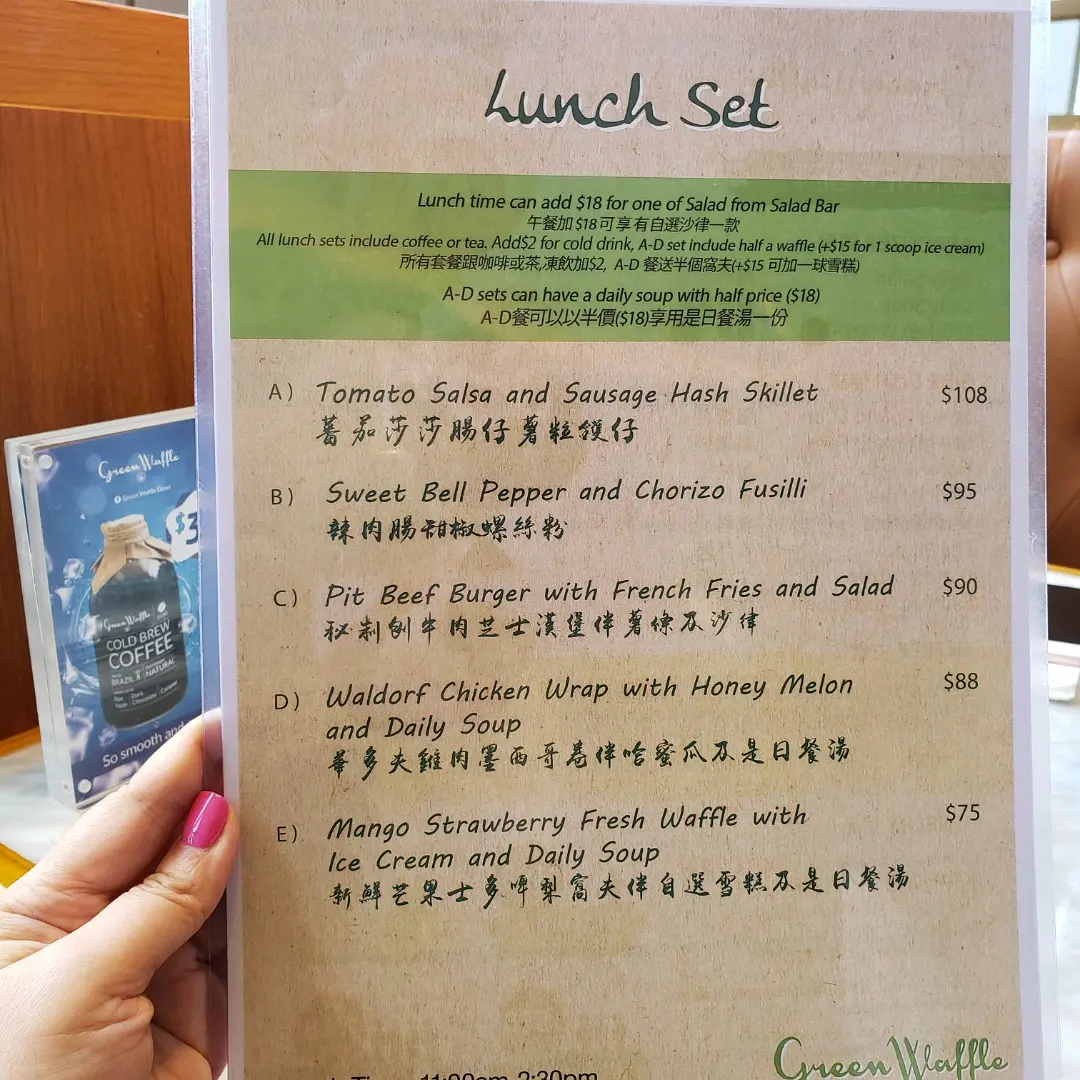 Lunch Set
Lunch time can add $18 for one of Salad from Salad Bar
午餐加 $18 可享有自選沙律一款
All lunch sets include coffee or tea. Add$2 for cold drink, A-D set include half a waffle (+$15 for 1 scoop ice cream)
所有套餐跟咖啡或茶,凍飲加$2, A-D 餐送半個窩夫(+$15 可加一球雪糕)
A-D sets can have a daily soup with half price ($18)
A-D餐可以以半價($18)享用是日餐湯一份
A) Tomato Salsa and Sausage Hash Skillet $108
蕃茄莎莎腸仔薯粒鑊仔
B) Sweet Bell Pepper and Chorizo Fusilli $95
辣肉腸甜椒螺絲粉
C) Pit Beef Burger with French Fries and Salad $90
秘制刨牛肉芝士漢堡伴薯條及沙律
D) Waldorf Chicken Wrap with Honey Melon $88
and Daily Soup
華多夫雞肉墨西哥卷伴哈蜜瓜及是日餐湯
E) Mango Strawberry Fresh Waffle with $75
Ice Cream and Daily Soup
新鮮芒果士多啤梨窩夫伴自選雪糕及是日餐湯
Green Waffle
11:00am-2:30pm
Green Waffle
Green Waffle Diner
$3
Green Waffle
COLD BREW
COFFEE
BRAZIL
NATURAL
Dark
Chocolate
Caramel
So smooth and